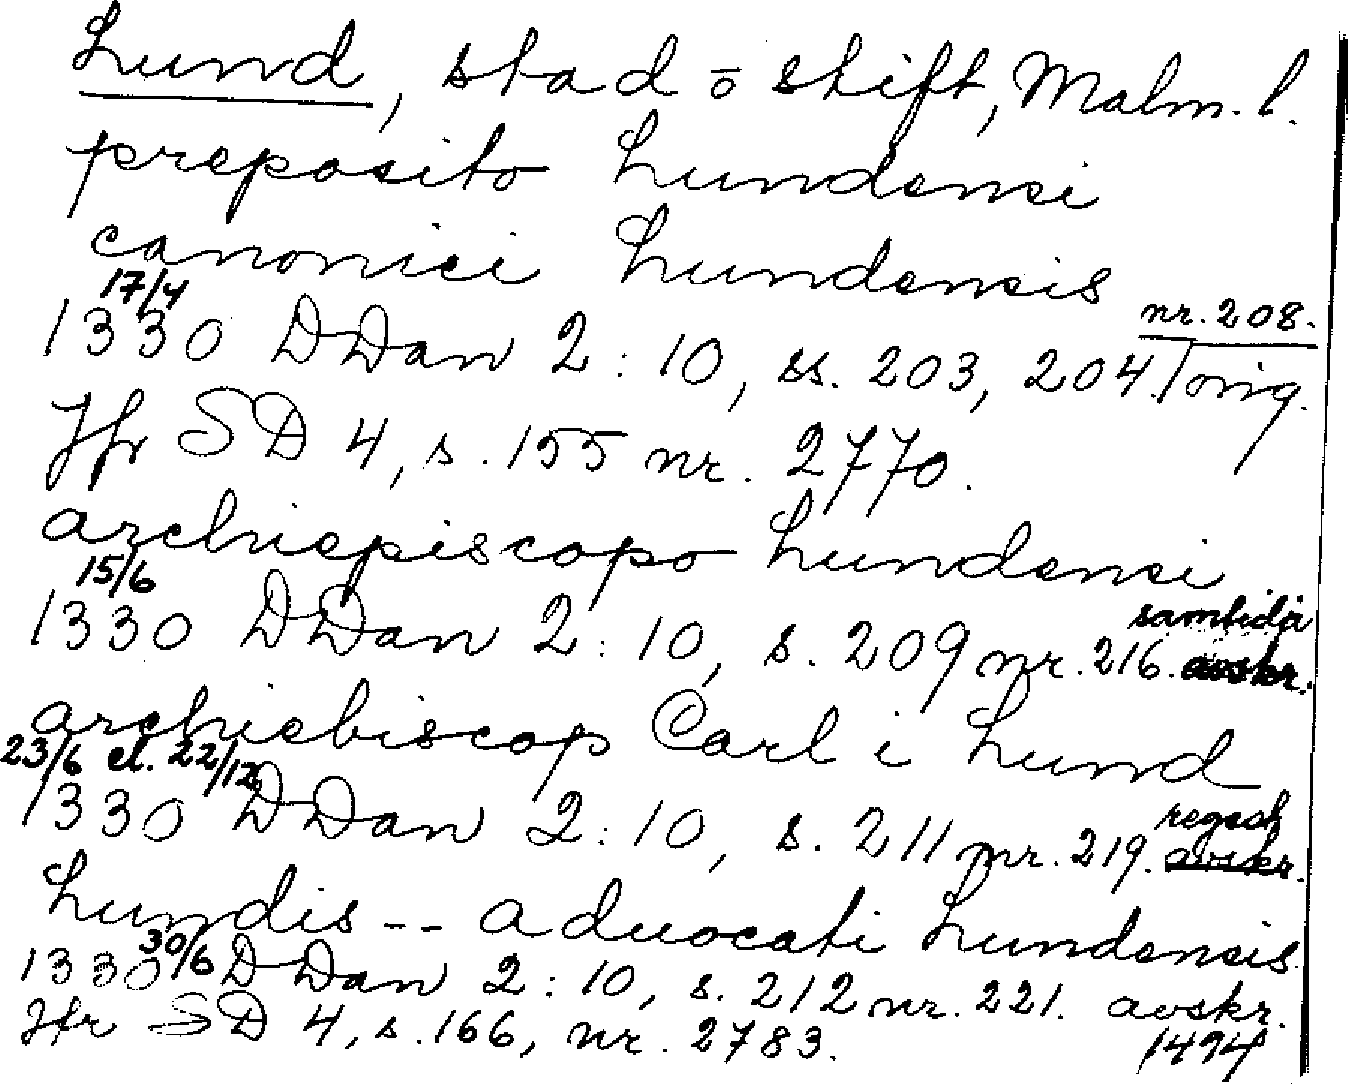 Lund, stad o stift, Malm. l.
preposito Lundensi
canonici Lundensis
17/4 nr. 208.
1330 DDan 2:10, ss. 203, 204. orig.
Jfr SD 4, s. 155 nr. 2770.
archiepiscopo Lundensi
15/6 samtida
1330 DDan 2:10, s. 209 nr. 216. avskr.
archiebiscop Carl i Lund
23/6 el. 22/12 regest
1330 DDan 2:10, s. 211 nr. 219. avskr.
Lundis -- aduocati Lundensis
30/6
1330 DDan 2:10, s. 212 nr. 221. avskr.
Jfr SD 4, s. 166, nr. 2783. 1494